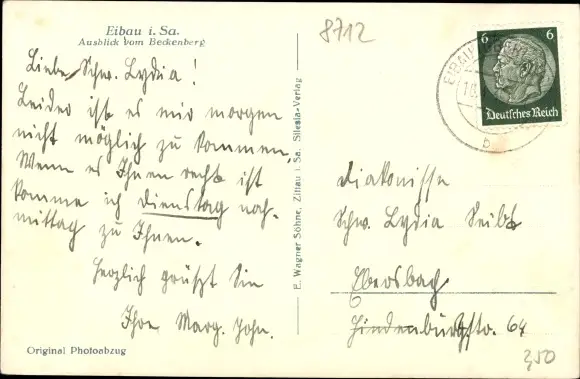 Eibau i. Sa.
Ausblick vom Beckenberg
Liebe Schw. Lydia!
Leider ist es mir morgen
nicht möglich zu kommen.
Wenn es Ihnen recht ist
komme ich dienstag nach-
mittag zu Ihnen.
Herzlich grüßt Sie
Ihre Marg. John.
Original Photoabzug
E. Wagner Söhne, Zittau i. Sa. Silesia-Verlag
8712
EIBAU
b
6 6
Deutsches Reich
Diakonisse
Schw. Lydia Seibt
Ebersbach
6
Hindenburgstr. 64
3,50